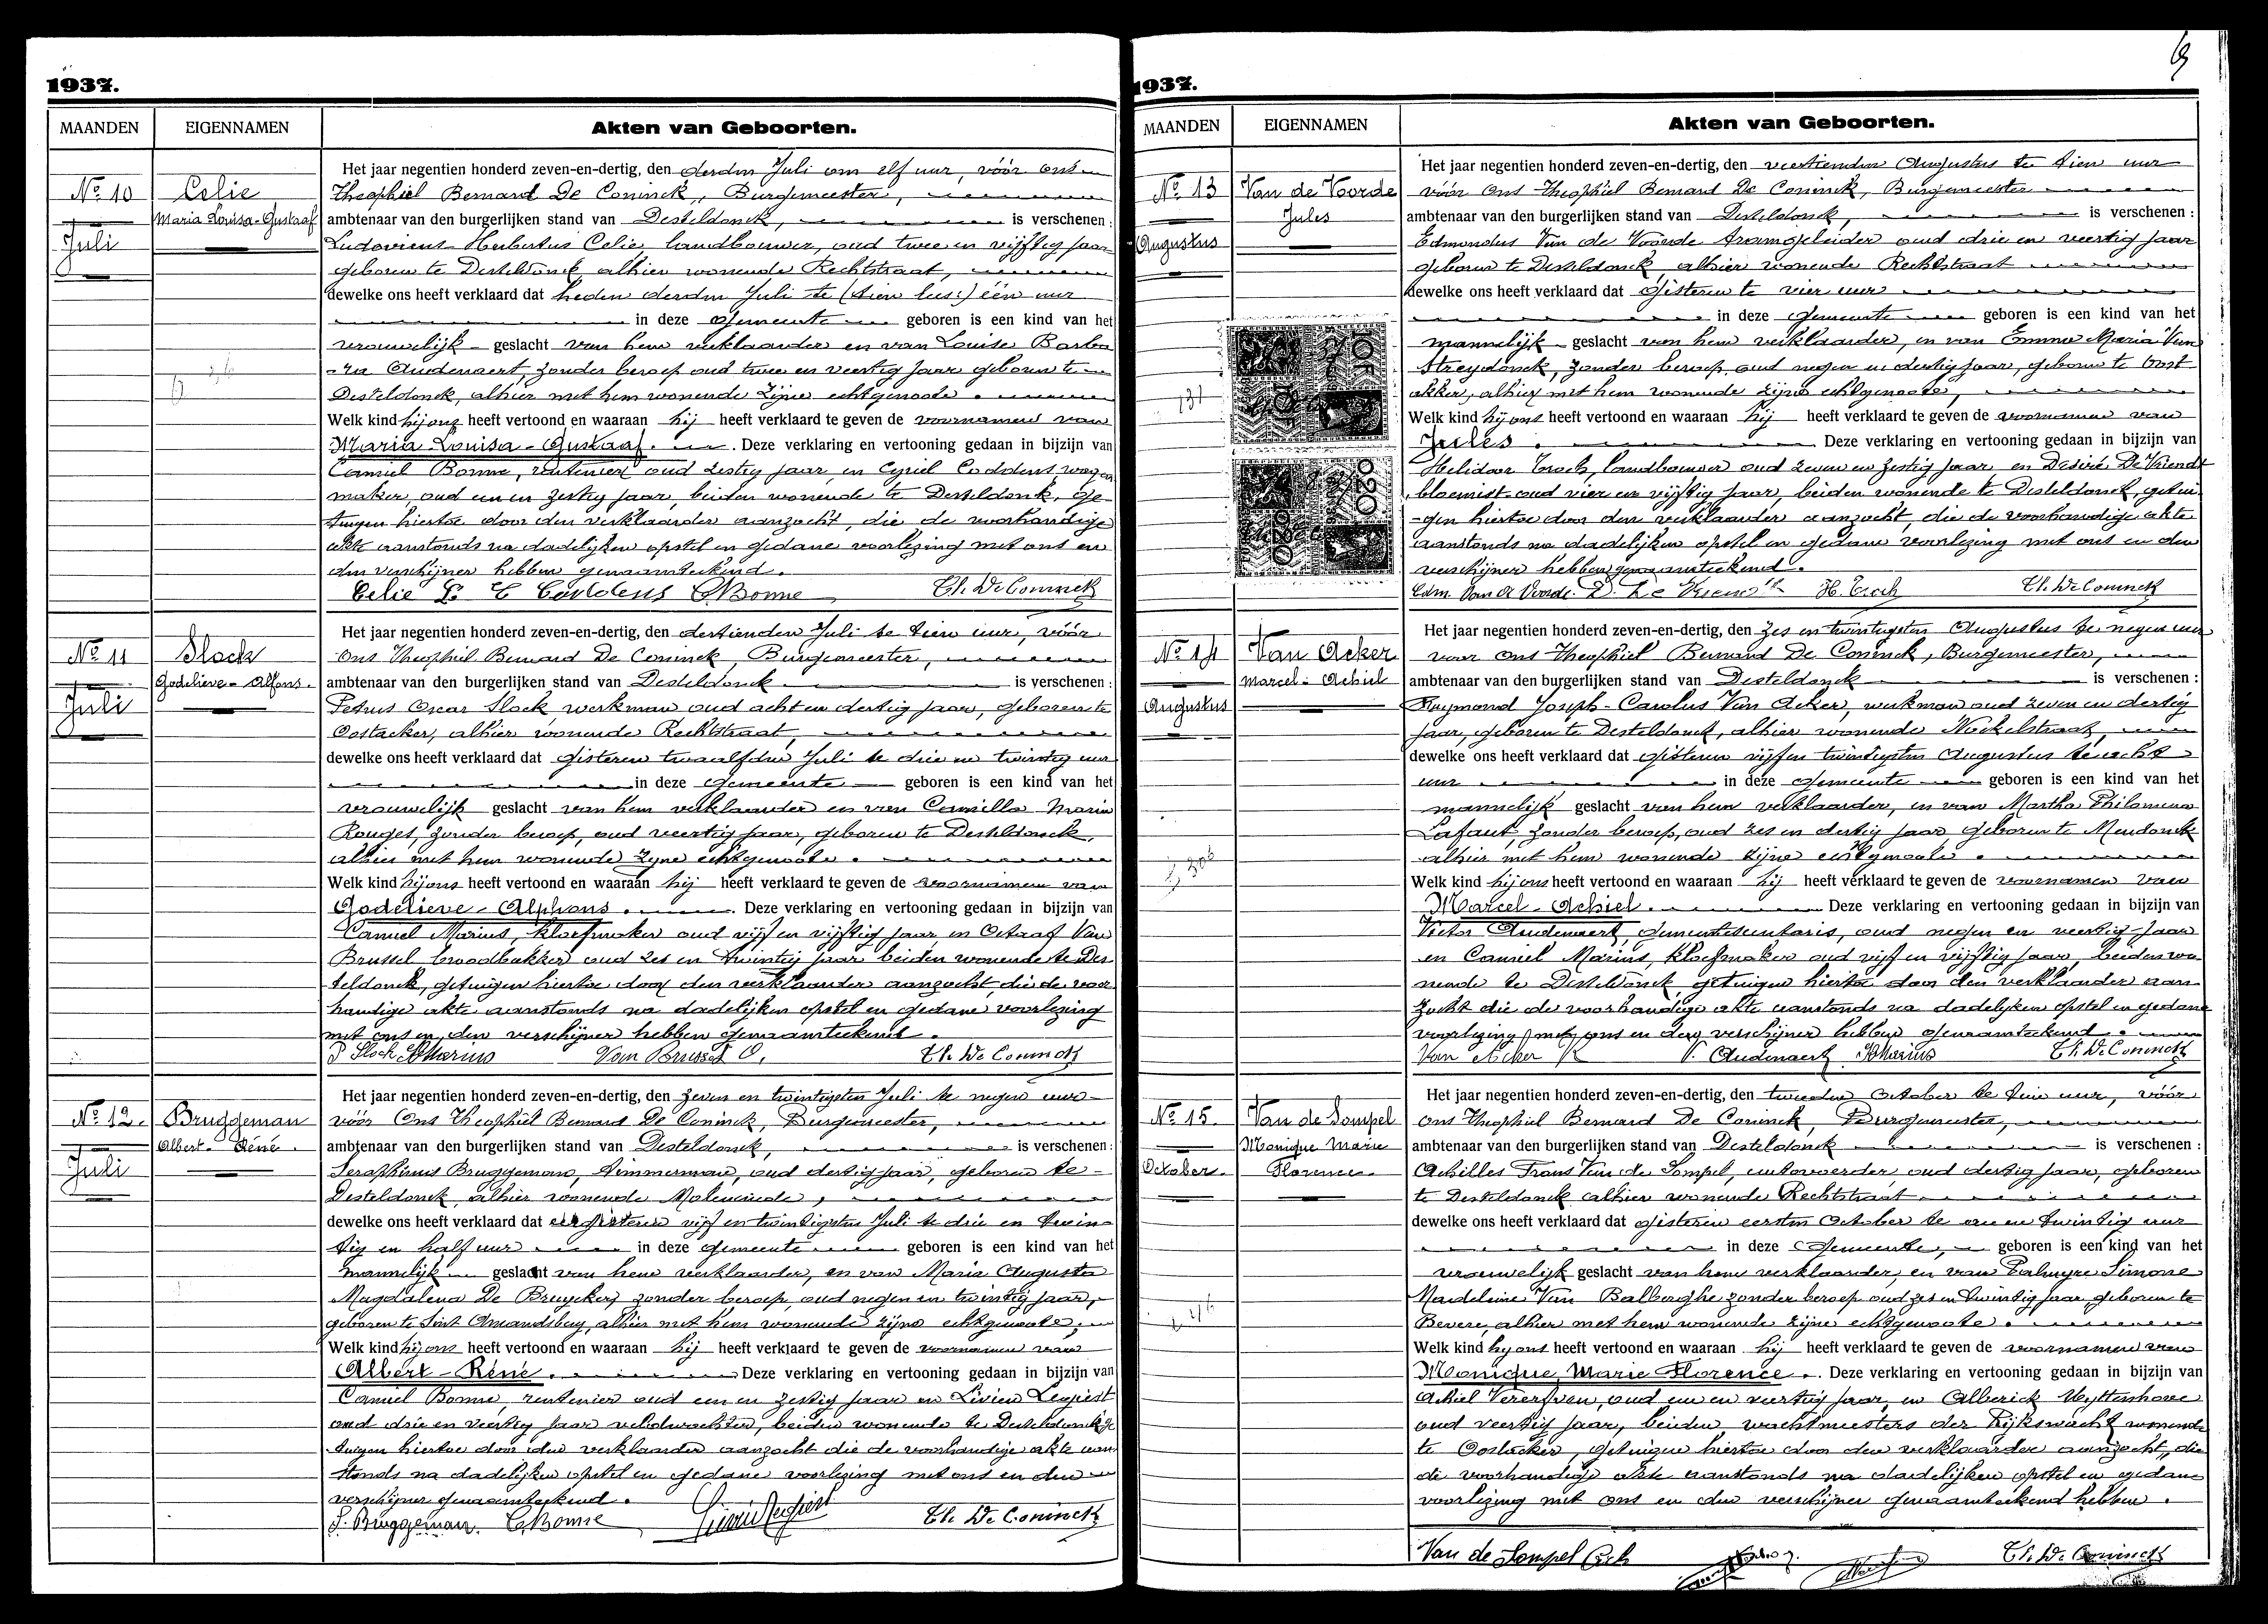 1937.
MAANDEN
EIGENNAMEN
Akten van Geboorten.
No 10
Juli
Celie
Maria Louisa-Gustaaf
Het jaar negentien honderd zeven-en-dertig, den derden Juli om elf uur, vóór ons
Theophiel Bernard De Coninck, Burgemeester,
ambtenaar van den burgerlijken stand van Desteldonck, is verschenen :
Ludovicus Hubertus Celie, landbouwer, oud twee en vijftig jaar
geboren te Desteldonck, alhier wonende Rechtstraat,
dewelke ons heeft verklaard dat heden derden Juli te (tien lees:) één uur
in deze gemeente geboren is een kind van het
vrouwelijk geslacht van hem verklaarder en van Louise Barba
-ra Audenaert, zonder beroep oud twee en veertig jaar geboren te
Desteldonck, alhier met hem wonende zijne echtgenoote.
Welk kind hij ons heeft vertoond en waaraan hij heeft verklaard te geven de voornamen van
Maria-Louisa-Gustaaf. Deze verklaring en vertooning gedaan in bijzijn van
Camiel Bonne, rentenier oud zestig jaar, en Cyriel Coddens wagen
maker, oud een en zestig jaar, beiden wonende te Desteldonk, ge-
tuigen hiertoe door den verklaarder aanzocht, die de voorhandige
akte aanstonds na dadelijken opstel en gedane voorlezing met ons en
den verschijner hebben genaamteekend.
Celie L. C Coddens CBonne Th. De Coninck
No 11
Juli
Slock
Godelieve-Alfons.
Het jaar negentien honderd zeven-en-dertig, den dertienden Juli te tien uur, vóór
Ons Theophiel Bernard De Coninck, Burgemeester,
ambtenaar van den burgerlijken stand van Desteldonck is verschenen :
Petrus Oscar Slock, werkman oud acht en dertig jaar, geboren te
Oostacker, alhier wonende Rechtstraat,
dewelke ons heeft verklaard dat gisteren twaalfden Juli te drie en twintig uur
in deze gemeente geboren is een kind van het
vrouwelijk geslacht van hem verklaarder en van Camilla Maria
Rouges, zonder beroep, oud veertig jaar, geboren te Desteldonck,
alhier met hem wonende zijne echtgenoote.
Welk kind hij ons heeft vertoond en waaraan hij heeft verklaard te geven de voornamen van
Godelieve-Alphons. Deze verklaring en vertooning gedaan in bijzijn van
Camiel Marius, kloefmaker oud vijf en vijftig jaar, en Octaaf Van
Brussel broodbakker oud zes en twintig jaar beiden wonende te Des
teldonck, getuigen hiertoe door den verklaarder aanzocht, die de voor
handige akte aanstonds na dadelijken opstel en gedane voorlezing
met ons en den verschijner hebben genaamteekend.
P Slock CMarius Van Brussel O. Th. De Coninck
No 12.
Juli
Bruggeman
Albert-Réné.
Het jaar negentien honderd zeven-en-dertig, den zeven en twintigsten Juli te negen uur
vóór Ons Theophiel Bernard De Coninck, Burgemeester,
ambtenaar van den burgerlijken stand van Desteldonck, is verschenen :
Seraphinus Bruggeman, timmerman, oud dertig jaar, geboren te
Desteldonck, alhier wonende Moleneinde,
dewelke ons heeft verklaard dat eergisteren vijf en twintigsten Juli te drie en twin-
tig en half uur in deze gemeente geboren is een kind van het
mannelijk geslacht van hem verklaarder, en van Maria Augusta
Magdalena De Bruycker, zonder beroep, oud negen en twintig jaar,
geboren te Sint Amandsberg, alhier met hem wonende zijne echtgenoote,
Welk kind hij ons heeft vertoond en waaraan hij heeft verklaard te geven de voornamen van
Albert-Réné. Deze verklaring en vertooning gedaan in bijzijn van
Camiel Bonne, rentenier oud een en zestig jaar en Livien Legiest
oud drie en veertig jaar veldwachter, beiden wonende te Desteldonck ge
tuigen hiertoe door den verklaarder aanzocht die de voorhandige akte aan
stonds na dadelijken opstel en gedane voorlezing met ons en den
verschijner genaamteekend.
S. Bruggeman. CBonne Livin Legiest Th. De Coninck
1937.
MAANDEN
EIGENNAMEN
Akten van Geboorten.
No 13
Augustus
131
Van de Voorde
Jules
Het jaar negentien honderd zeven-en-dertig, den veertienden Augustus te tien uur
vóór Ons Theophiel Bernard De Coninck, Burgemeester
ambtenaar van den burgerlijken stand van Desteldonck, is verschenen :
Edmondus Van de Voorde tramgeleider oud drie en veertig jaar
geboren te Desteldonck, alhier wonende Rechtstraat
dewelke ons heeft verklaard dat gisteren te vier uur
in deze gemeente geboren is een kind van het
mannelijk geslacht van hem verklaarder, en van Emma Maria Van
Streydonck, zonder beroep, oud negen en dertig jaar, geboren te Oost
akker, alhier met hem wonende zijne echtgenoote,
Welk kind hij ons heeft vertoond en waaraan hij heeft verklaard te geven de voornamen van
Jules. Deze verklaring en vertooning gedaan in bijzijn van
Helidoor Troch, landbouwer oud zeven en zestig jaar en Desiré De Vriendt
bloemist oud vier en vijftig jaar, beiden wonende te Desteldonck, getui
-gen hiertoe door den verklaarder aanzocht, die de voorhandige akte
aanstonds na dadelijken opstel en gedane voorlezing met ons en den
verschijner hebben genaamteekend.
Edm. Van de Voorde. D. De Vriendt H. Troch Th. De Coninck
No 14
Augustus
Van Acker
Marcel-Achiel
Het jaar negentien honderd zeven-en-dertig, den zes en twintigsten Augustus te negen uur
voor Ons Theophiel Bernard De Coninck, Burgemeester,
ambtenaar van den burgerlijken stand van Desteldonck is verschenen :
Raymond Joseph-Carolus Van Acker, werkman oud zeven en dertig
jaar, geboren te Desteldonck, alhier wonende Nockelstraat,
dewelke ons heeft verklaard dat gisteren vijf en twintigsten Augustus te acht
uur in deze gemeente geboren is een kind van het
mannelijk geslacht van hem verklaarder, en van Martha Philomena
Lafaut, zonder beroep, oud zes en dertig jaar geboren te Mendonck
alhier met hem wonende zijne echtgenoote.
Welk kind hij ons heeft vertoond en waaraan hij heeft verklaard te geven de voornamen van
Marcel-Achiel. Deze verklaring en vertooning gedaan in bijzijn van
Victor Audenaert, gemeentesecretaris, oud negen en veertig jaar
en Camiel Marius, kloefmaker oud vijf en vijftig jaar, beiden wo
nende te Desteldonck, getuigen hiertoe door den verklaarder aan
zocht die de voorhandige akte aanstonds na dadelijken opstel en gedane
voorlezing met ons en den verschijner hebben genaamteekend.
Van Acker R V. Audenaert CMarius Th. De Coninck
No 15.
October.
Van de Sompel
Monique Marie
Florence.
Het jaar negentien honderd zeven-en-dertig, den tweeden October te tien uur, vóór
Ons Theophiel Bernard De Coninck, Burgemeester,
ambtenaar van den burgerlijken stand van Desteldonck is verschenen :
Achilles Frans Van de Sompel, autovoerder, oud dertig jaar, geboren
te Desteldonck alhier wonende Rechtstraat
dewelke ons heeft verklaard dat gisteren eersten October te een en twintig uur
in deze Gemeente, geboren is een kind van het
vrouwelijk geslacht van hem verklaarder, en van Palmyre Simone
Madeleine Van Balberghe zonder beroep oud zes en twintig jaar geboren te
Bevere, alhier met hem wonende zijne echtgenoote.
Welk kind hij ons heeft vertoond en waaraan hij heeft verklaard te geven de voornamen van
Monique, Marie Florence. Deze verklaring en vertooning gedaan in bijzijn van
Achiel Vererfven, oud een en veertig jaar, en Alberick Uyttenhove
oud veertig jaar, beiden wachtmeesters der Rijkswacht wonende
te Oostacker, getuigen hiertoe door den verklaarder aanzocht, die
de voorhandige akte aanstonds na dadelijken opstel en gedane
voorlezing met ons en den verschijner genaamteekend hebben.
Van de Sompel Ach Th. De Coninck